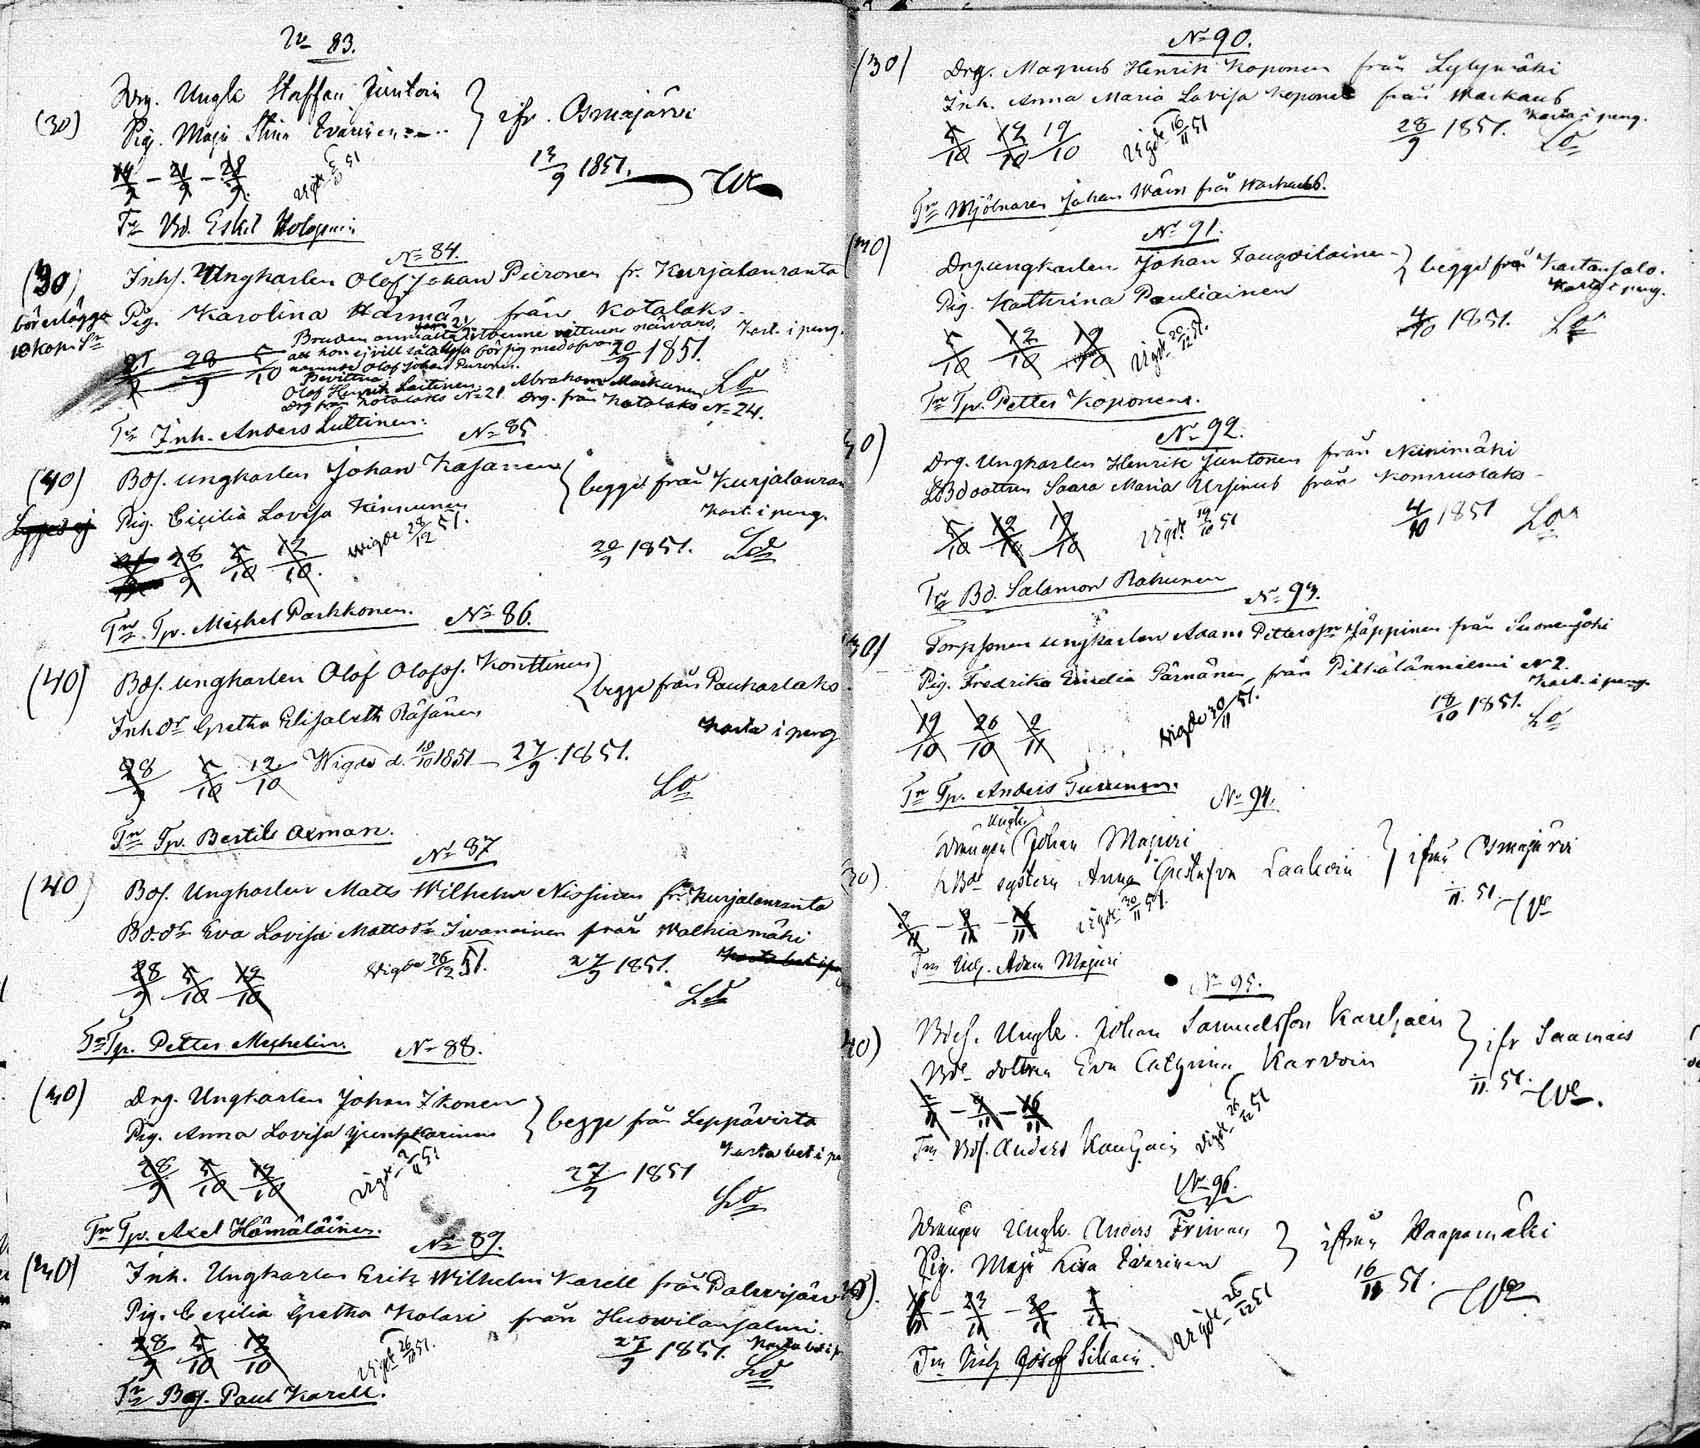 No 83.
(30) Drg. Ungk. Staffan Juntoin
Pig. Maja Stina Evarinen } ifr. Osmajärvi
14/9 - 21/9 - 28/9 Vigde 51
13/9 1851.
Tn Bd. Eskel Holopain
No 84.
(30) Inhs. Ungkarlen Olof Johan Piironen fr. Kurjalanranta
Pig. Karolina från Kotalaks.
10 kop. Sr
Kort. i peng.
21/9 28/9 5/10
Bruden anmälte i vittnens närvaro,
att hon ej vill låta lysa för sig med ofvan
nämnte Olof Johan Piironen.
20/9 1851.
Bevittna
Olof Henrik Laitinen Abraham Markunen
Drg från Kotalaks No 21. Drg. från Kotalaks No 24.
Tn Inh. Anders Luttinen.
No 85
(40) Bds. ungkarlen Johan Kasanen
Pig. Cicilia Lovisa Kinnunen } begge från Kurjalanran
Kort i peng.
21/9 28/9 5/10 12/10. Wigde 28/12 51.
20/9 1851.
Tn Tp. Michel Parkkonen.
No 86.
(40) Bds. ungkarlen Olof Olofss. Konttinen
Inh dr Gretha Elisabeth Räsänen } begge från Paukarlaks
Korta i peng
28/9 5/10 12/10 Wigde d. 18/10 1851 27/9 1851.
Tn Tp. Bertils Axman.
No 87
(40) Bds. Ungkarlen Matts Wilhelm Nissinen fr. Kurjalanranta
Bd. dr Eva Lovisa Mattsdr Iivanainen från Walkiamäki
28/9 5/10 12/10 Vigde 26/12 51. 27/9 1851.
Tn Tp. Petter Michelin.
No 88.
(40) Drg. Ungkarlen Johan Ikonen
Pig. Anna Lovisa } begge från Leppävirta
Korta bet i pe
28/9 5/10 12/10 Vigde 2/11 51 27/9 1851
Tn Tp. Axel Hämäläinen.
No 89.
(40) Inh. Ungkarlen Erik Wilhelm Karell från
Pig. Cecilia Gretha Kolari från Huowilansalmi.
28/9 5/10 12/10 Vigde 26/10 51. 27/9 1851. Korta bet i p
Tn Bds. Paul Karell.
No 90.
(30) Drg. Magnus Henrik Koponen från Lylymäki
Inh. Anna Maria Lovisa Koponen från Warkaus
Korta i peng.
5/10 12/10 19/10 Vigde 16/11 51 28/9 1851.
Tn Mjölnaren Johan från Warkaus.
No 91.
Drg. ungkarlen Johan
Pig. Kathrina Pauliainen } begge från Kartansalo.
Korta i peng.
5/10 12/10 19/10 Vigde 26/12 51. 4/10 1851.
Tn Tp. Petter Koponen.
No 92.
Drg. Ungkarlen Henrik Juntonen från Niinimäki
Bd dottren Saara Maria Ursinus från Konnuslaks
5/10 12/10 19/10 Vigde 19/10 51 4/10 1851
Tn Bd. Salamon Rahunen
No 93.
Torpsonen ungkarlen Adam Petterson Jäppinen från Suonenjoki
Pig. Fredrika Emelia Pärnänen från Pitkälänniemi No 2.
Kort. i peng.
19/10 26/10 2/11 Vigde 30/11 51. 18/10 1851.
Tn Tp. Anders Turunen.
No 94.
Ungk.
Drängen Johan Majuri
Bds systern Anna Gustafva Laakoin } ifrån Osmajärvi
2/11 - 9/11 - 16/11 Vigde 30/11 51. 1/11. 51.
Tn Ung. Adam Majuri
No 95.
Bds. Ungk. Johan Samuelsson Kauhain
Bds dottren Eva Catharina Karvoin } ifr Saamais
1/11. 51.
2/11 - 9/11 - 16/11 Vigde 26/12 51
Tn Bds. Anders Kauhain
No 96.
Drängen Ungk. Anders Friman
Pig. Maja Lisa Evarinen } ifrån Haapamäki
16/11 51.
16/11 - 23/11 - 30/11 Vigde 26/12 51
Tn Josef Sikain.